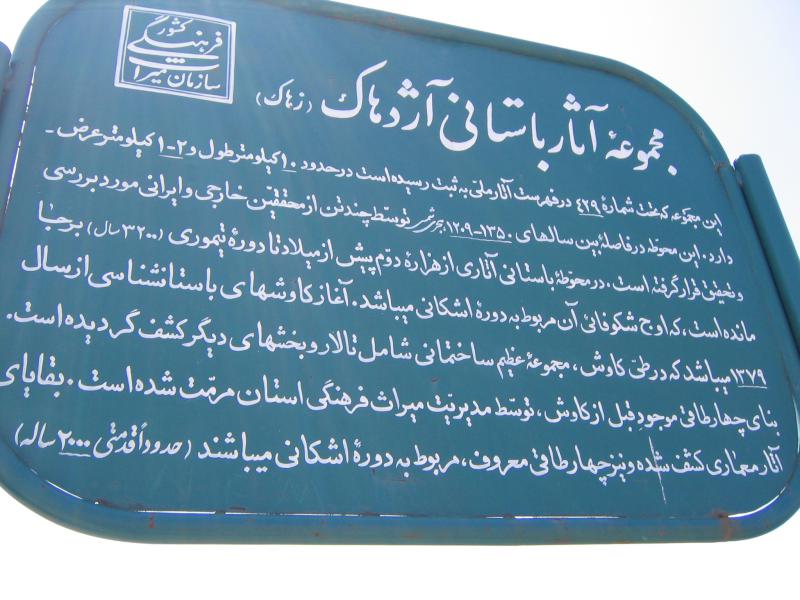 سازمان میراث
فرهنگی
کشور
مجموعهٔ آثار باستانی آژدهاک (زهاک)
این مجموعه که تحت شمارهٔ ۴۲۹ در فهرست آثار ملی به ثبت رسیده است در حدود ۱۰ کیلومتر طول و ۲-۱ کیلومتر عرض -
دارد. این محوطه در فاصلهٔ بین سالهای ۱۳۵۰-۱۲۰۹ هجری شمسی توسط چند تن از محققین خارجی و ایرانی مورد بررسی
و تحقیق قرار گرفته است. در محوطهٔ باستانی آثاری از هزارهٔ دوّم پیش از میلاد تا دورهٔ تیموری (۳۲۰۰ سال) برجا
مانده است، که اوج شکوفائی آن مربوط به دورهٔ اشکانی میباشد. آغاز کاوشهای باستانشناسی از سال
۱۳۷۹ میباشد که در طیّ کاوش، مجموعهٔ عظیم ساختمانی شامل تالار و بخشهای دیگر کشف گردیده است.
بنای چهارطاقی موجودِ قبل از کاوش، توسّط مدیریّت میراث فرهنگی استان مرمّت شده است. بقایای
آثار معماری کشف شده و نیز چهارطاقی معروف، مربوط به دورهٔ اشکانی میباشند (حدوداً قدمتی ۲۰۰۰ ساله)